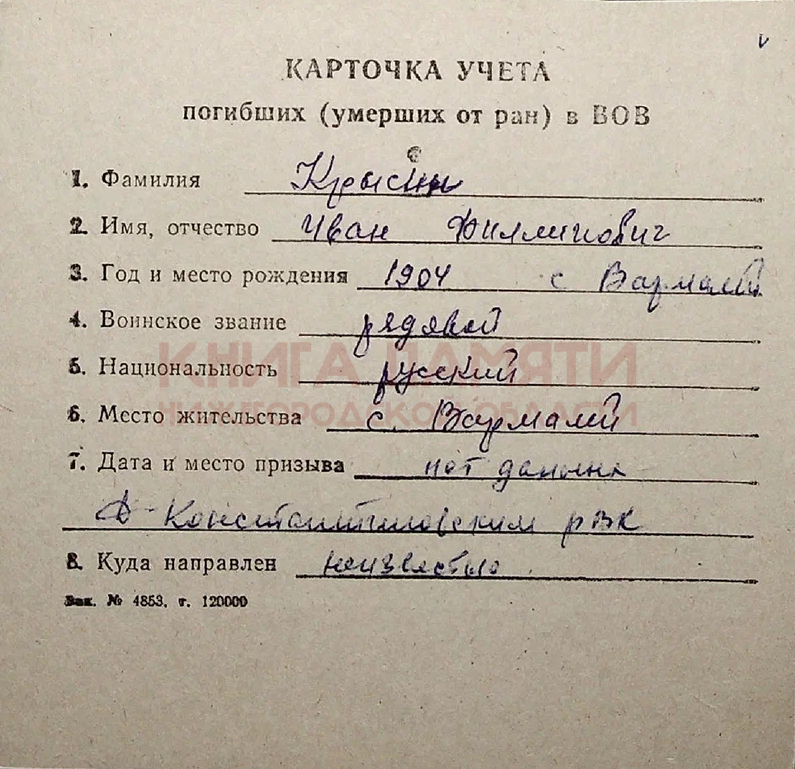 КАРТОЧКА УЧЕТА
погибших (умерших от ран) в ВОВ
1. Фамилия Крысин
2. Имя, отчество Иван Филлипович
3. Год и место рождения 1904 с Вармалей
4. Воинское звание рядовой
5. Национальность русский
КНИГА ПАМЯТИ
6. Место жительства с. Вармалей
НИЖЕГОРОДСКОЙ ОБЛАСТИ
7. Дата и место призыва нет данных
Д-Константиновским РВК
8. Куда направлен неизвестно
Зак. № 4853, т. 120000